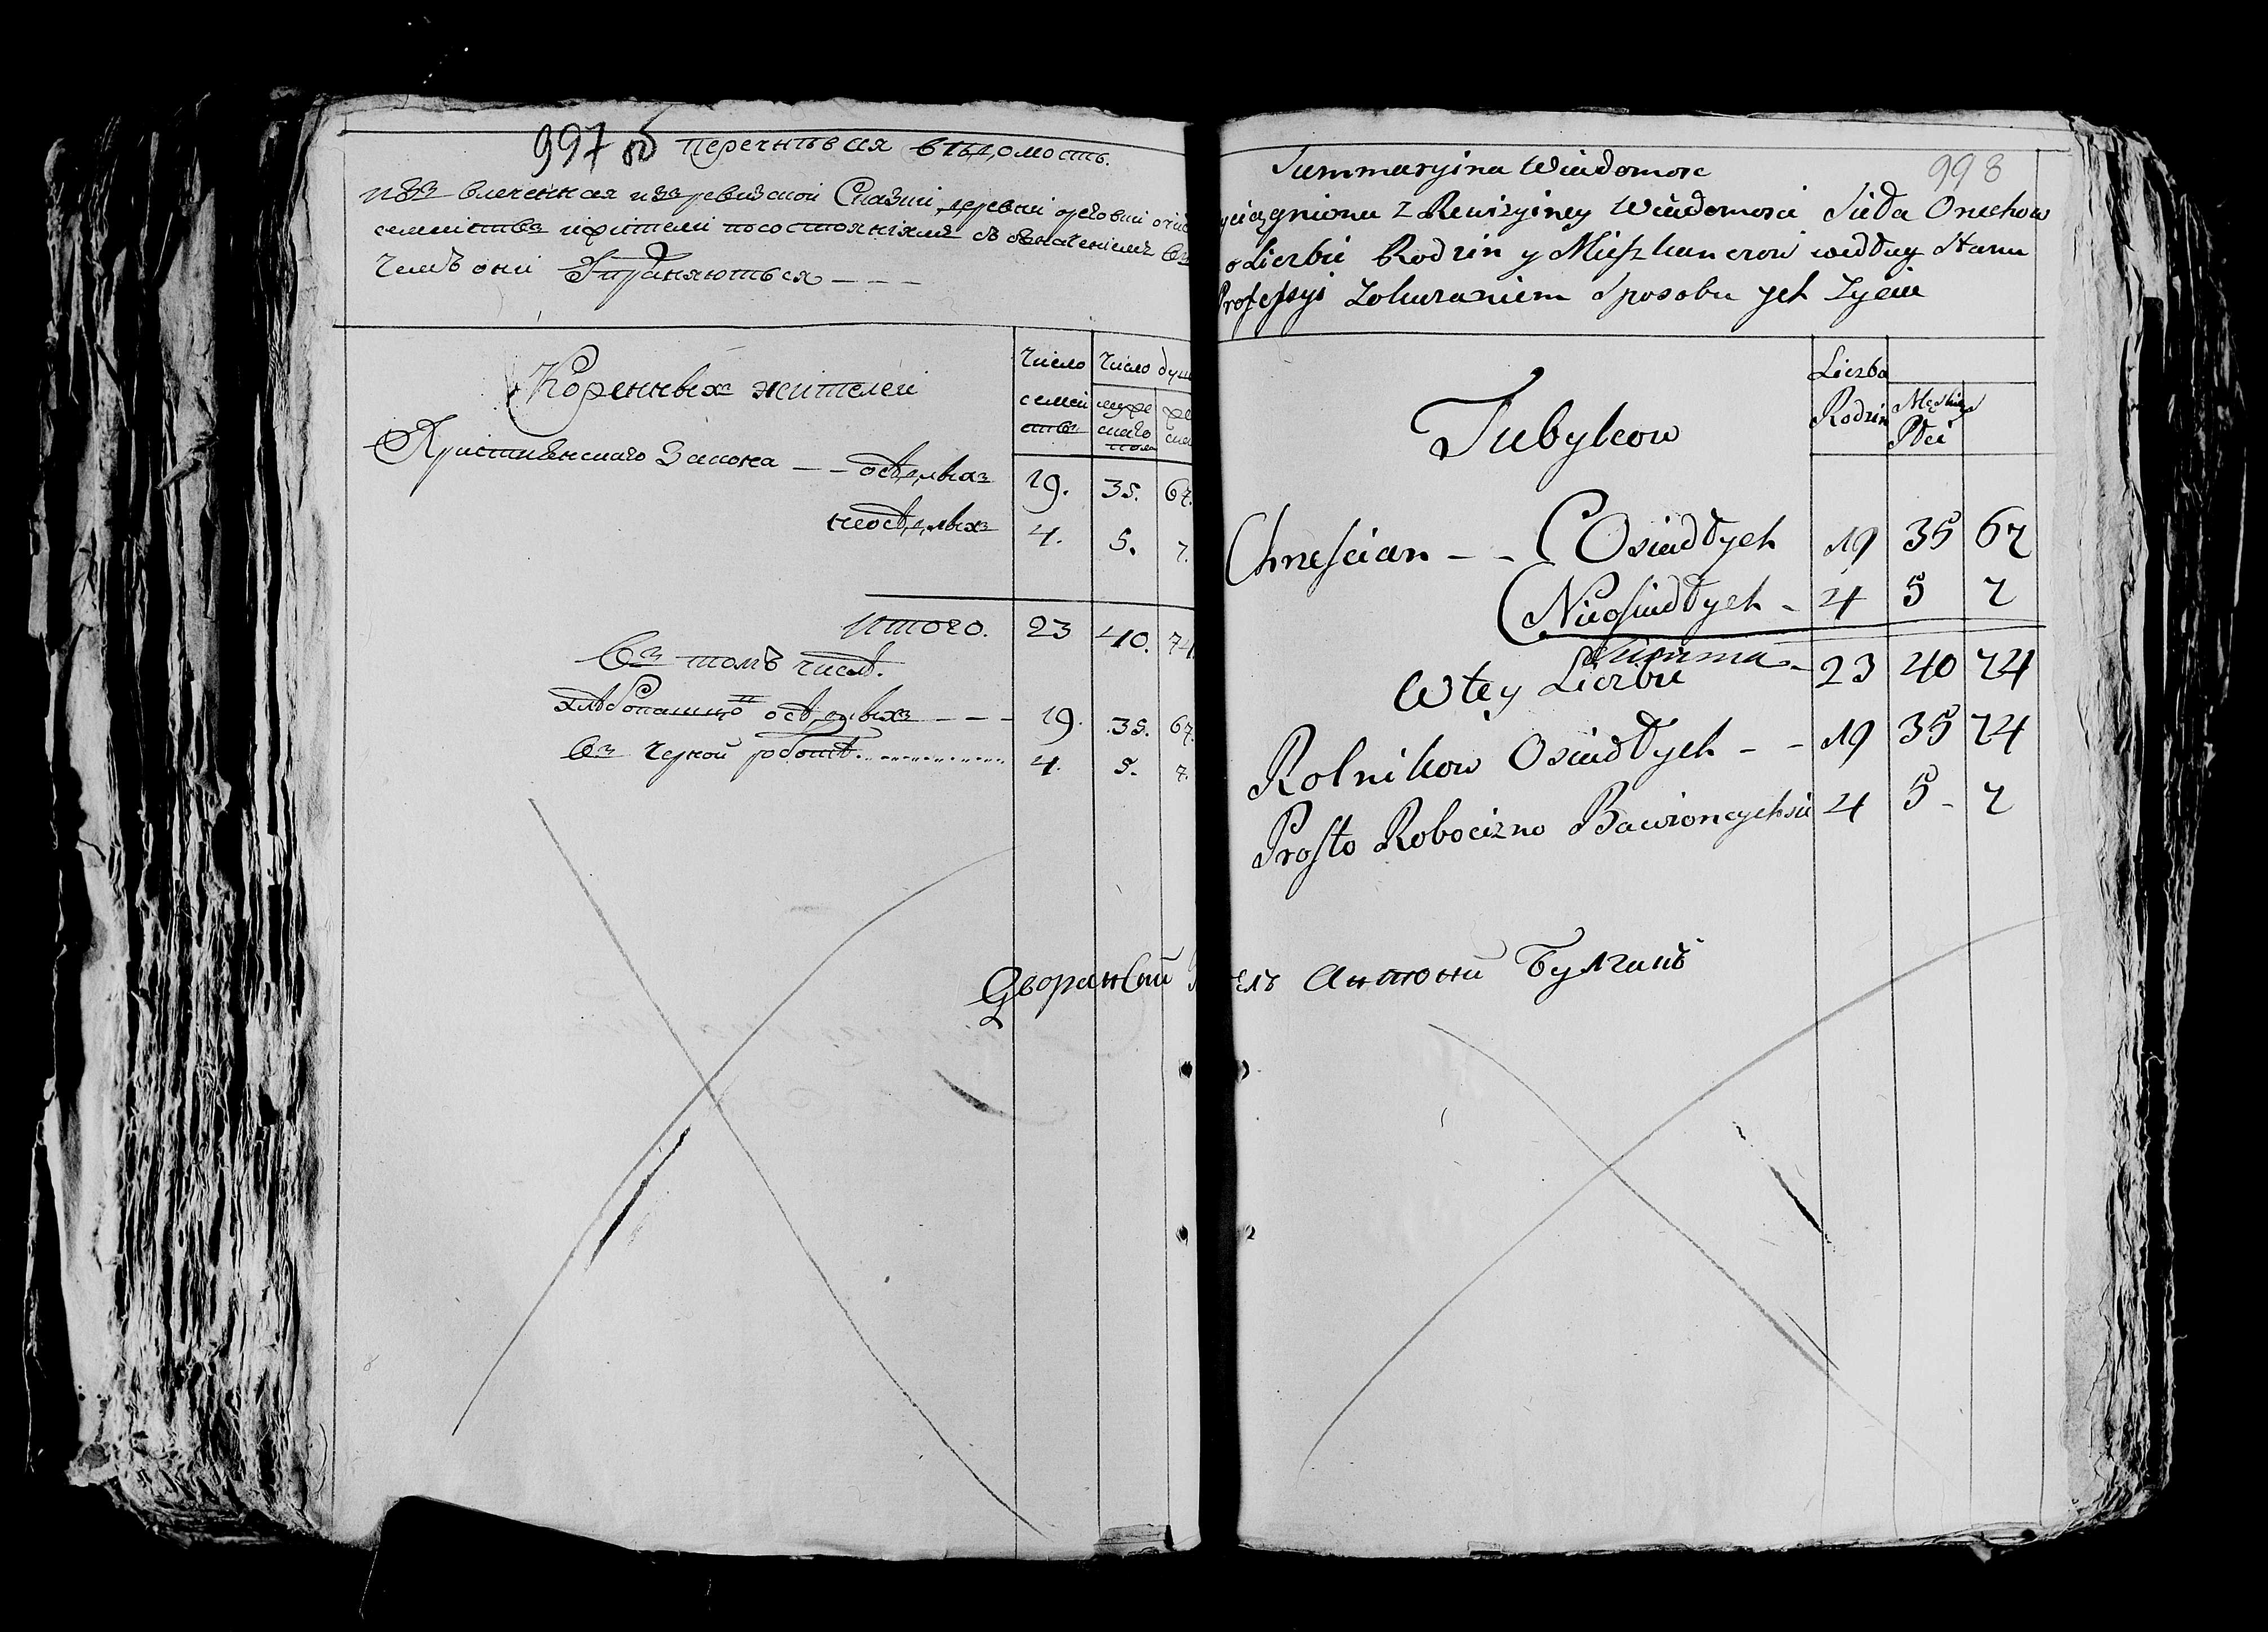 997 об Перечневая ведомость.
Извлеченная изъ ревизской Сказки деревни
семействъ и жители по состояниямъ съ означениемъ въ
чемъ они упражняються - - -
Коренныхъ жителей
Число
семей
ствъ
Число душ
муже
скаго
пола
же
Християнскаго Закона - - оседлыхъ 19. 35. 67.
неоседлыхъ 4. 5. 7.
Итого. 23 40. 74.
Въ томъ числѣ.
хлебопашцо оседлыхъ - - - 19. 35. 67.
Въ черной роботѣ. 4. 5. 7.
Дворянски
998
Summaryina Wiadomosc
yciągniona Z Rewizyiney Wiadomosci Sioła Orechow
o Liczbie Rodzin y Mieszkancrow według Stanu
Professyi Zokuraniem Sposobu ych Zycia
Tubylcow
Liczba
Rodzin
Męskiey
Płci
Chrescian - - Osiadłych 19 35 67
Nieosiadłych - 4 5 7
Summa - 23 40 74
W tey Liczbie
Rolnikow Osiadłych - - 19 35 74
Prosto Robocizno Bawioncychsie 4 5 - 7
ель Антони Булгакъ